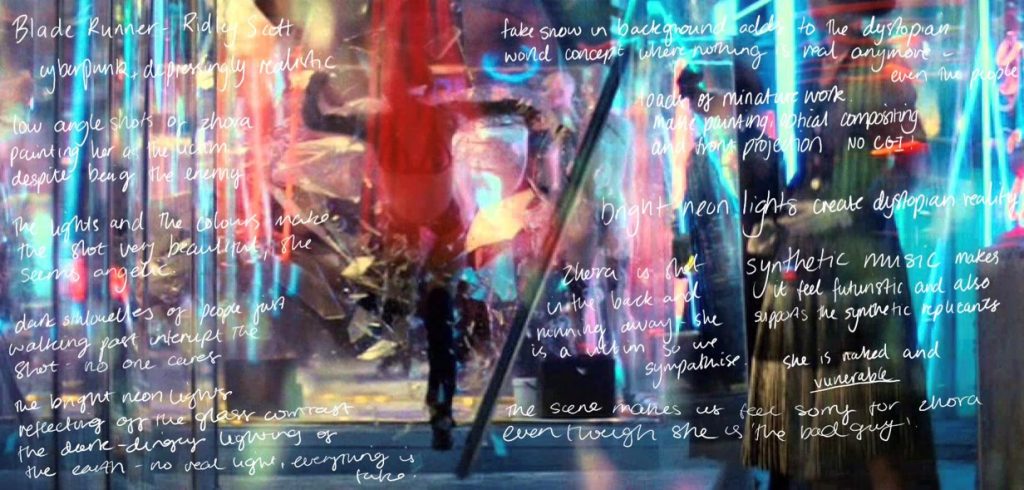 Blade Runner - Ridley Scott
cyberpunk, depressingly realistic
low angle shots of zhora
painting her as the victim
despite being the enemy
The lights and the colours make
the shot very beautiful, she
seems angelic.
dark silhouettes of people just
walking past interupt the
shot - no one cares
the bright neon lights
reflecting off the glass contrast
the dark-dingey lighting of
the earth - no real light, everything is
fake.
fake snow in background adds to the dystopian
world concept where nothing is real anymore -
even the people
loads of minature work.
matte painting, optical compositing
and front projection NO CGI!
bright neon lights create dystopian reality
zhora is shot
in the back and
running away - she
is a victim so we
sympathise
synthetic music makes
it feel futuristic and also
supports the synthetic replicants
she is naked and
vunerable
the scene makes us feel sorry for zhora
even though she is 'the bad guy'.